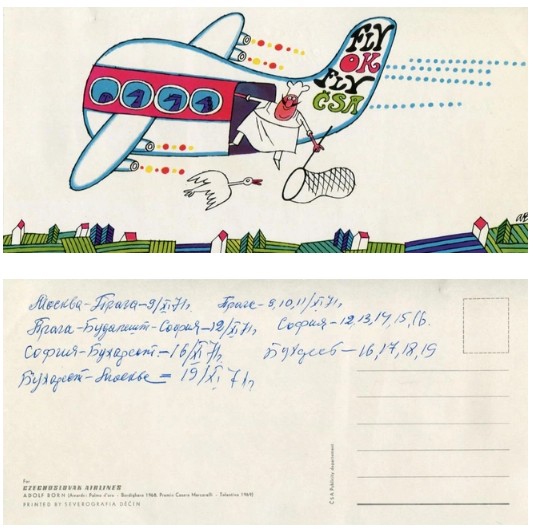 FLY
OK
FLY
ČSA
Москва-Прага-9/XI 71г, Прага-9,10,11/XI 71г,
Прага-Будапешт-София-12/XI 71г, София-12,13,14,15,16.
София-Бухарест-16/XI 71г, Бухарест-16,17,18,19
Бухарест-Москва = 19/XI 71г
For
CZECHOSLOVAK AIRLINES
ADOLF BORN (Awards: Palma d'oro - Bordighera 1968, Premio Cesare Marcorelli - Tolentino 1969)
PRINTED BY SEVEROGRAFIA DĚČÍN
ČSA Publicity department